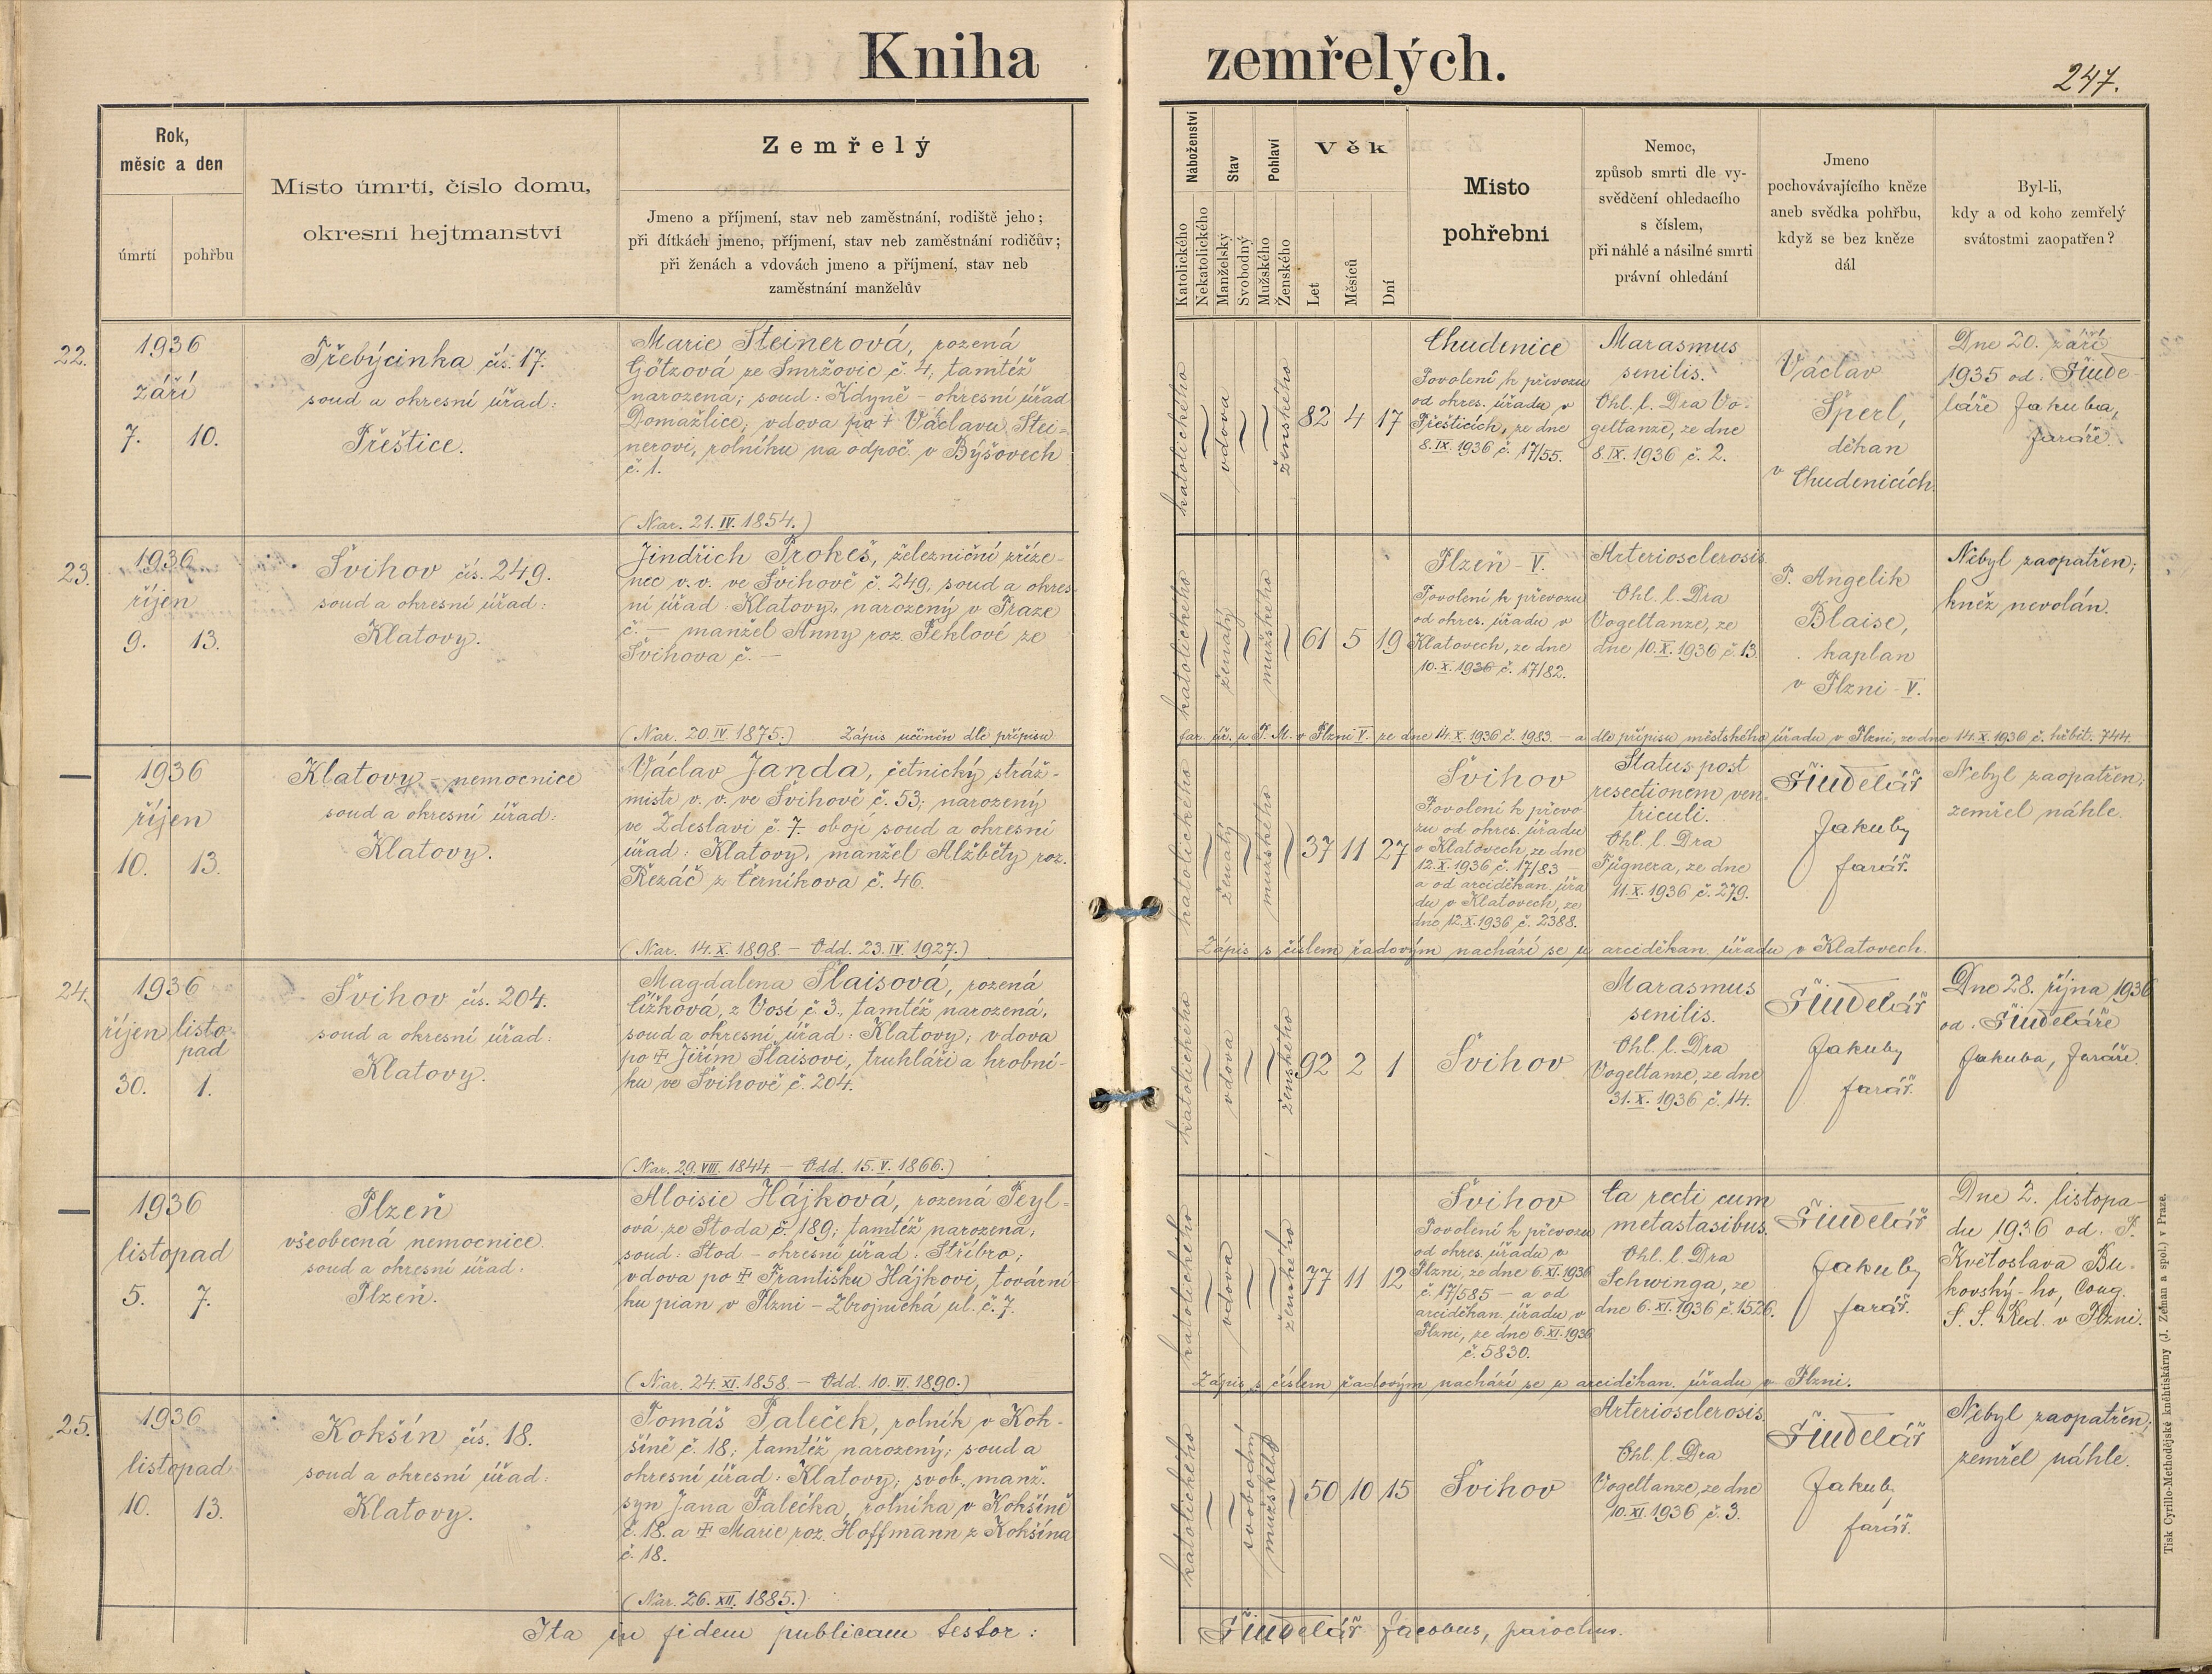 Kniha zemřelých.
247.
Rok,
měsíc a den
úmrtí
pohřbu
Místo úmrtí, číslo domu,
okresní hejtmanství
Zemřelý
Jmeno a příjmení, stav neb zaměstnání, rodiště jeho;
při dítkách jmeno, příjmení, stav neb zaměstnání rodičův;
při ženách a vdovách jmeno a příjmení, stav neb
zaměstnání manželův
Náboženství
Katolického
Nekatolického
Stav
Manželský
Svobodný
Pohlaví
Mužského
Ženského
Věk
Let
Měsíců
Dní
Místo
pohřební
Nemoc,
způsob smrti dle vy-
svědčení ohledacího
s číslem,
při náhlé a násilné smrti
právní ohledání
Jmeno
pochovávajícího kněze
aneb svědka pohřbu,
když se bez kněze
dál
Byl-li,
kdy a od koho zemřelý
svátostmi zaopatřen?
22.
1936
září
7. 10.
Třebýcinka čís. 17.
soud a okresní úřad:
Přeštice.
Marie Steinerová, rozená
Götzová ze Smržovic č. 4, tamtéž
narozená; soud: Kdyně - okresní úřad
Domažlice; vdova po † Václavu Stei-
nerovi, rolníku na odpoč. v Býšovech
č. 1.
(Nar. 21. IV. 1854.)
katolického
vdova
ženského
82 4 17
Chudenice
Povolení k převozu
od okres. úřadu v
Přešticích, ze dne
8. IX. 1936 č. 17/55.
Marasmus
senilis.
Ohl. l. Dra Vo-
geltanze, ze dne
8. IX. 1936 č. 2.
Václav
Šperl,
děkan
v Chudenicích.
Dne 20. září
1935 od: Šinde-
láře Jakuba,
faráře.
23.
1936
říjen
9. 13.
Švihov čís. 249.
soud a okresní úřad:
Klatovy.
Jindřich Prokeš, železniční zříze-
nec v. v. ve Švihově č. 249, soud a okres-
ní úřad: Klatovy, narozený v Praze
č. — manžel Anny roz. Peklové ze
Švihova č. —
(Nar. 20. IV 1875.) Zápis učiněn dle přípisu
katolického
ženatý
mužského
61 5 19
Plzeň - V.
Povolení k převozu
od okres. úřadu v
Klatovech, ze dne
10. X. 1936 č. 17/82.
Arteriosclerosis.
Ohl. l. Dra
Vogeltanze, ze
dne 10. X. 1936 č. 13.
P. Angelik
Blaise,
kaplan
v Plzni - V.
Nebyl zaopatřen;
kněz nevolán.
far. úř. u P. M. v Plzni V. ze dne 14. X. 1936 č. 1983. — a dle přípisu městského úřadu v Plzni, ze dne 14. X. 1936 č. hřbit. 744.
—
1936
říjen
10. 13.
Klatovy - nemocnice
soud a okresní úřad:
Klatovy.
Václav Janda, četnický stráž-
mistr v. v. ve Švihově č. 53; narozený
ve Zdeslavi č. 7. obojí soud a okresní
úřad: Klatovy, manžel Alžběty roz.
Řezáč z Černíkova č. 46.
(Nar. 14. X. 1898. — Odd. 23. IV. 1927.)
katolického
ženatý
mužského
37 11 27
Švihov
Povolení k převo-
zu od okres. úřadu
v Klatovech, ze dne
12. X. 1936 č. 17/83 —
a od arciděkan. úřa-
du v Klatovech, ze
dne 12. X. 1936 č. 2388.
Status post
resectionem ven-
triculi.
Ohl. l. Dra
Fügnera, ze dne
11. X. 1936 č. 279.
Šindelář
Jakub,
farář.
Nebyl zaopatřen;
zemřel náhle.
Zápis s číslem řadovým nachází se u arciděkan. úřadu v Klatovech.
24.
1936
říjen listo-
pad
30. 1.
Švihov čís. 204.
soud a okresní úřad:
Klatovy.
Magdalena Slaisová, rozená
Čížková, z Vosí č. 3., tamtéž narozená,
soud a okresní úřad: Klatovy; vdova
po † Jiřím Slaisovi, truhláři a hrobní-
ku ve Švihově č. 204.
(Nar. 29. VIII. 1844. — Odd. 15. V. 1866.)
katolického
vdova
ženského
92 2 1
Švihov
Marasmus
senilis.
Ohl. l. Dra
Vogeltanze, ze dne
31. X. 1936 č. 14.
Šindelář
Jakub,
farář.
Dne 28. října 1936
od: Šindeláře
Jakuba, faráře.
—
1936
listopad
5. 7.
Plzeň
všeobecná nemocnice.
soud a okresní úřad:
Plzeň.
Aloisie Hájková, rozená Peyl-
ová ze Stoda č. 189; tamtéž narozená;
soud: Stod - okresní úřad: Stříbro;
vdova po † Františku Hájkovi, tovární-
ku pian v Plzni - Zbrojnická ul. č. 7.
(Nar. 24. XI. 1858. — Odd. 10. VI. 1890.)
katolického
vdova
ženského
77 11 12
Švihov
Povolení k převozu
od okres. úřadu v
Plzni, ze dne 6. XI. 1936
č. 17/585 — a od
arciděkan. úřadu v
Plzni, ze dne 6. XI. 1936
č. 5830.
Ca recti cum
metastasibus.
Ohl. l. Dra
Schwinga, ze
dne 6. XI. 1936 č. 1526.
Šindelář
Jakub,
farář.
Dne 2. listopa-
du 1936 od. P.
Květoslava Bu-
kovský-ho, Cong.
S. S. Red. v Plzni.
Zápis s číslem řadovým nachází se u arciděkan. úřadu v Plzni.
25.
1936
listopad
10. 13.
Kokšín čís. 18.
soud a okresní úřad:
Klatovy.
Tomáš Paleček, rolník v Kok-
šíně č. 18; tamtéž narozený; soud a
okresní úřad: Klatovy; svob., manž.
syn Jana Palečka, rolníka v Kokšíně
č. 18. a † Marie roz. Hoffmann z Kokšína
č. 18.
(Nar. 26. XII. 1885.)
katolického
svobodný
mužského
50 10 15
Švihov
Arteriosclerosis.
Ohl. l. Dra
Vogeltanze, ze dne
10. XI. 1936 č. 3.
Šindelář
Jakub,
farář.
Nebyl zaopatřen;
zemřel náhle.
Ita in fidem publicam testor:
Šindelář Jacobus, parochus.
Tisk Cyrillo-Methodějské knihtiskárny (J. Zeman a spol.) v Praze.